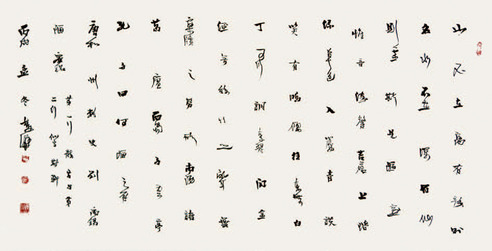 山不在高有仙则
名水不在深有
则灵斯是陋室
惟吾德馨苔痕上阶
绿草色入帘青谈
笑有鸿儒往来无白
丁可以调素琴阅金
经无丝竹之乱耳无
案牍之劳形南阳诸
葛庐西蜀子云亭
孔子曰何陋之有
唐和州刺史刘禹锡
陋室